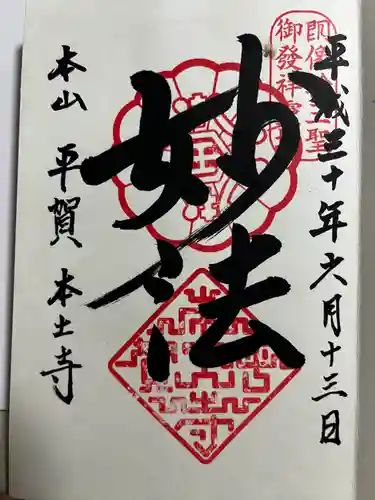 平成三十年六月十三日
御發祥
妙法
本山 平賀 本土寺